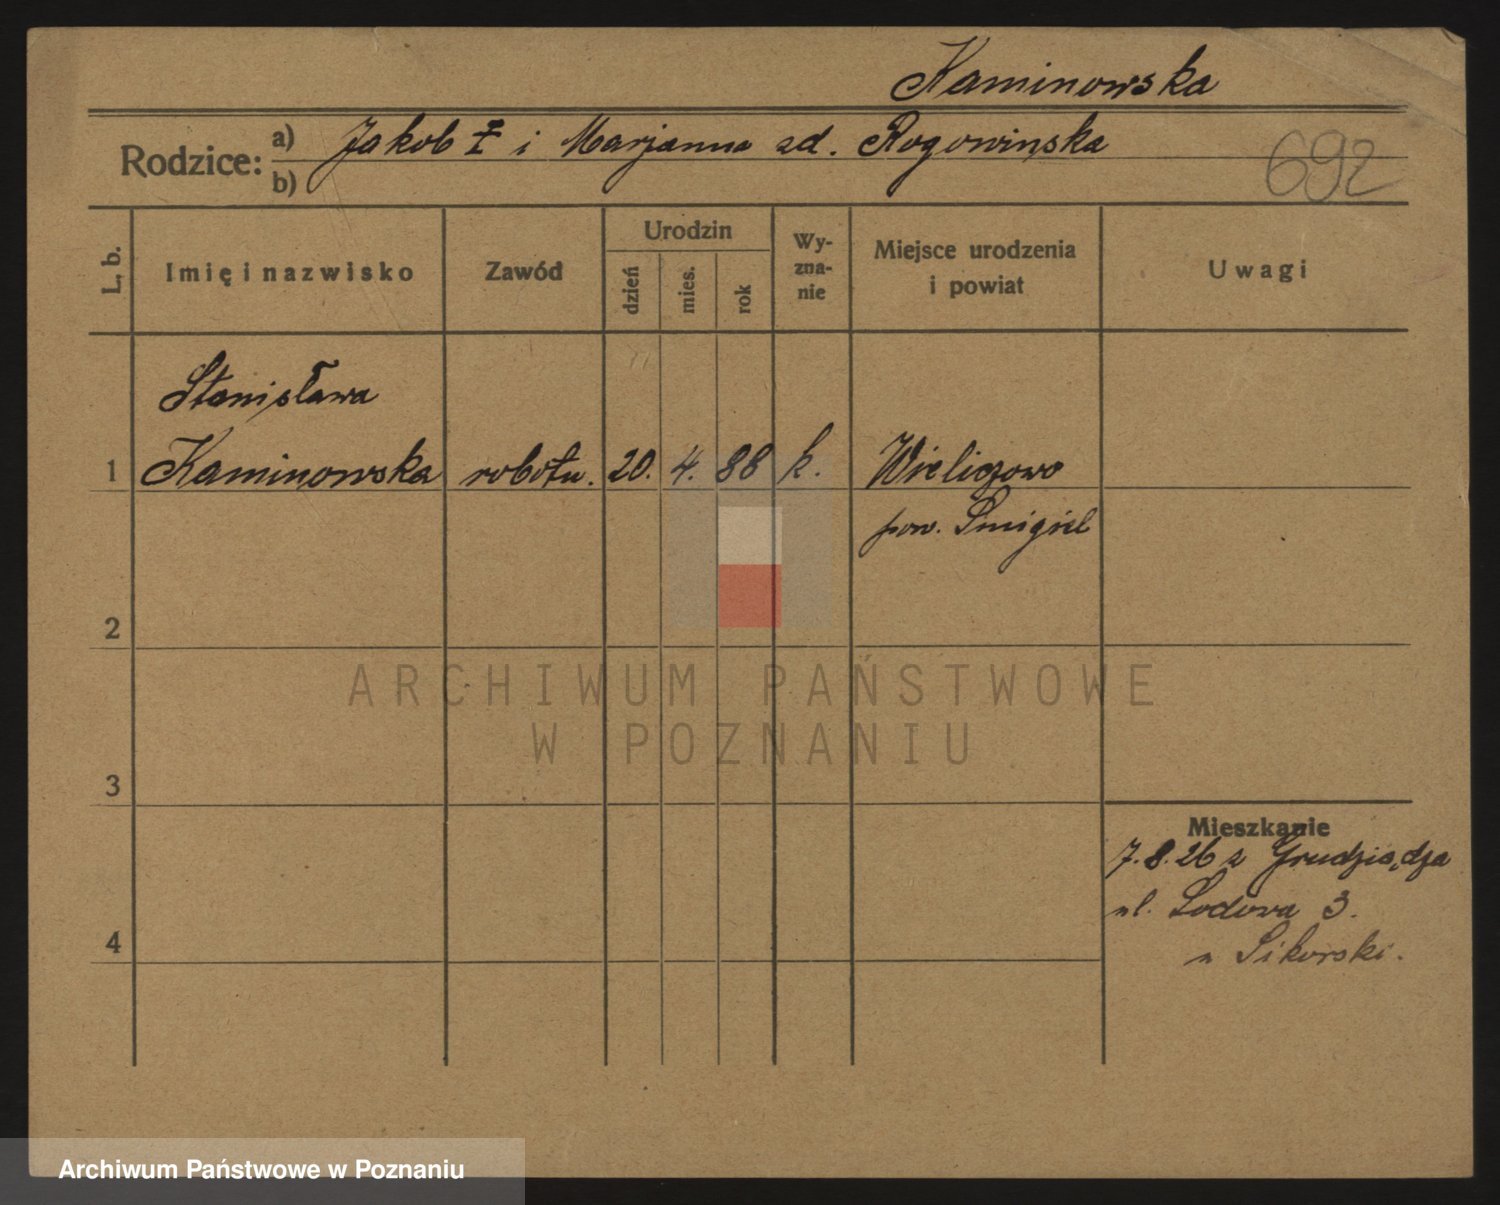 Kaminowska
Rodzice: a) Jakob Ŧ i Marjanna zd. Rogowińska
b)
692
L. b.
Imię i nazwisko
Zawód
Urodzin
dzień
mies.
rok
Wy-
zna-
nie
Miejsce urodzenia
i powiat
Uwagi
Stanisława
1 Kaminowska robotn. 20. 4. 88 k. Wieliczowo
pow. Śmigiel
2
3
4
Mieszkanie
7.8.26 z Grudziądza
ul. Lodowa 3.
u Sikorski.
ARCHIWUM PAŃSTWOWE
W POZNANIU
Archiwum Państwowe w Poznaniu